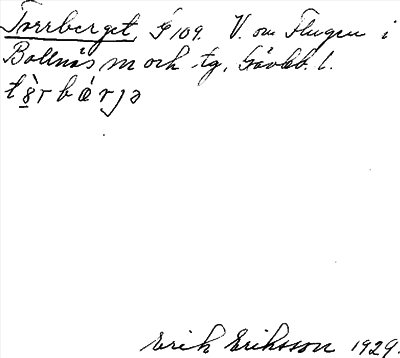 Torrberget, G 109. V. om Flugen i
Bollnäs sn och tg, Gävleb. l.
tòrbærjə
Erik Eriksson 1929.